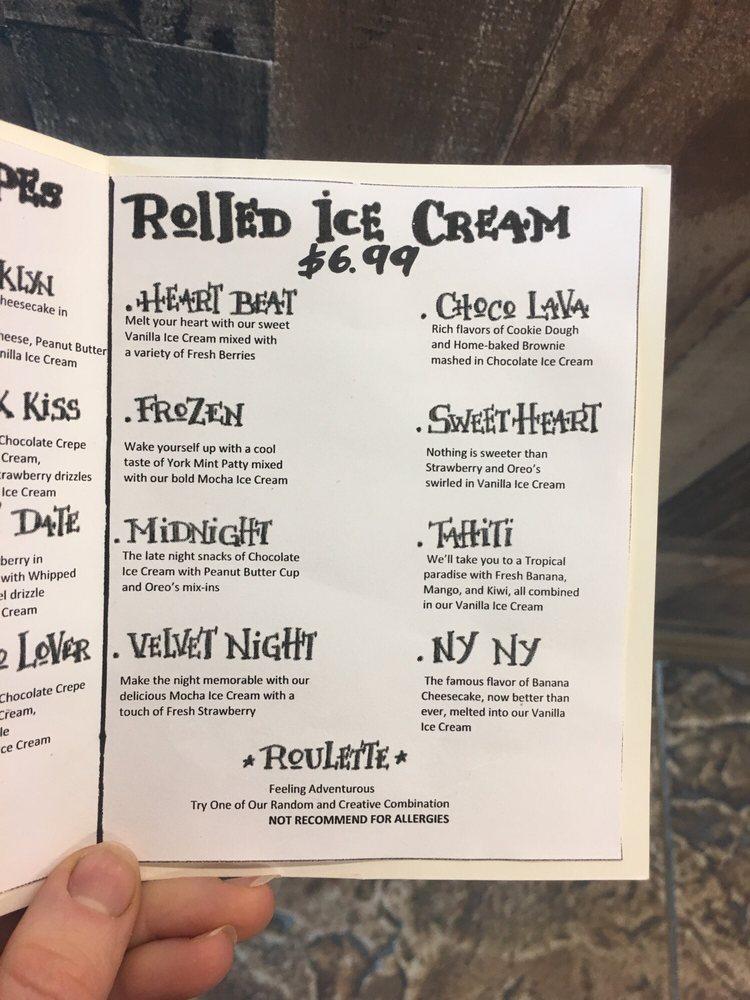 PES
KLYN
heesecake in
heese, Peanut Butter
nilla Ice Cream
X KISS
Chocolate Crepe
Cream,
rawberry drizzles
Ice Cream
DATE
berry in
with Whipped
el drizzle
Cream
O LOVER
Chocolate Crepe
Cream,
le
ce Cream
ROLLED ICE CREAM
$6.99
. HEART BEAT
Melt your heart with our sweet
Vanilla Ice Cream mixed with
a variety of Fresh Berries
. FROZEN
Wake yourself up with a cool
taste of York Mint Patty mixed
with our bold Mocha Ice Cream
. MIDNIGHT
The late night snacks of Chocolate
Ice Cream with Peanut Butter Cup
and Oreo's mix-ins
. VELVET NIGHT
Make the night memorable with our
delicious Mocha Ice Cream with a
touch of Fresh Strawberry
. CHOCO LAVA
Rich flavors of Cookie Dough
and Home-baked Brownie
mashed in Chocolate Ice Cream
. SWEETHEART
Nothing is sweeter than
Strawberry and Oreo's
swirled in Vanilla Ice Cream
. TAHITI
We'll take you to a Tropical
paradise with Fresh Banana,
Mango, and Kiwi, all combined
in our Vanilla Ice Cream
. NY NY
The famous flavor of Banana
Cheesecake, now better than
ever, melted into our Vanilla
Ice Cream
* ROULETTE *
Feeling Adventurous
Try One of Our Random and Creative Combination
NOT RECOMMEND FOR ALLERGIES